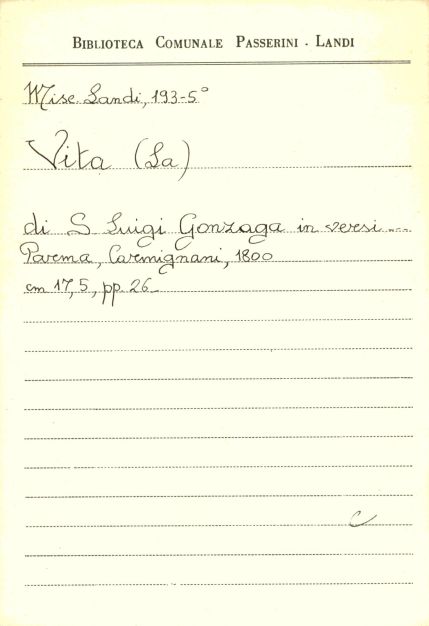 BIBLIOTECA COMUNALE PASSERINI - LANDI
Misc. Landi, 193-5°
Vita (La)
di S Luigi Gonzaga in versi ...
Parma, Carmignani, 1800
cm 17,5, pp. 26_
C